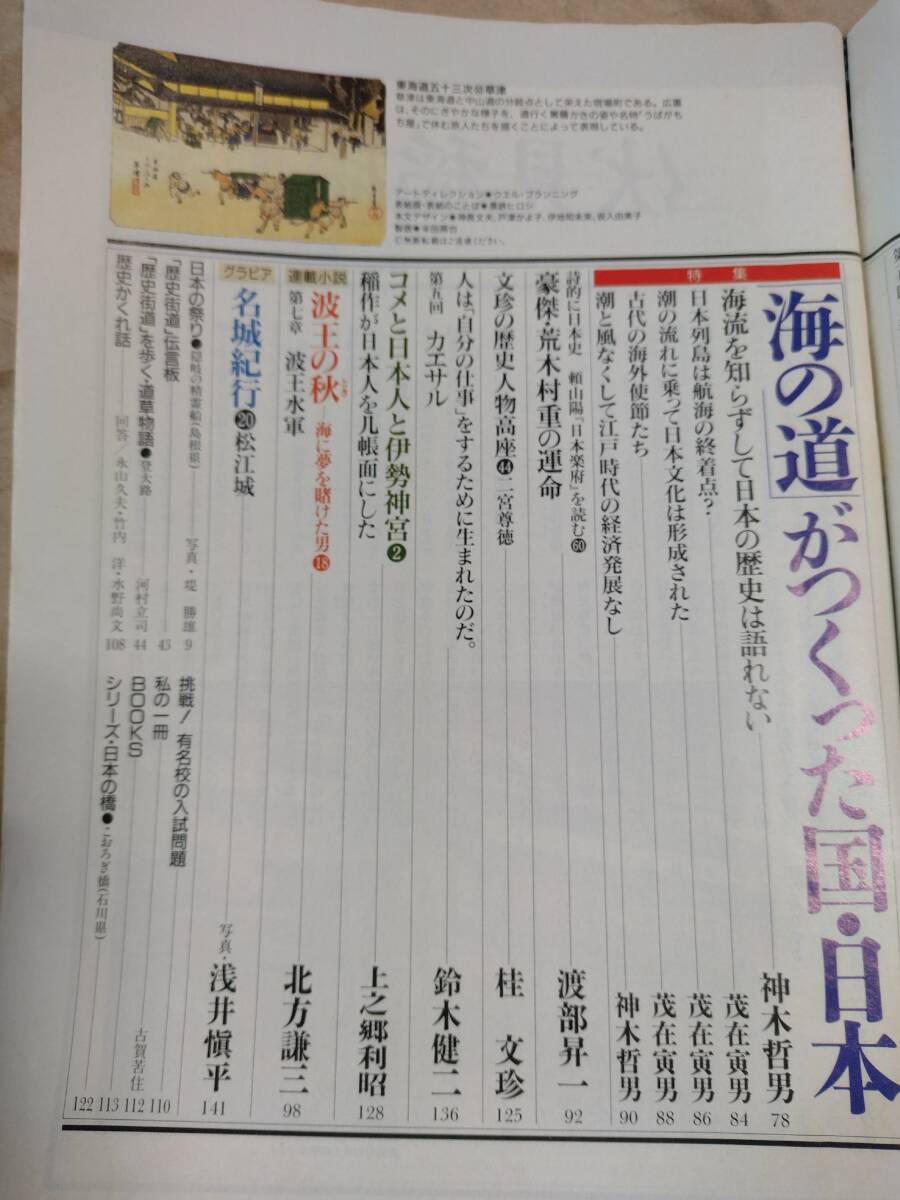 東海道五十三次 草津
草津は東海道と中山道の分岐点として栄えた宿場町である。広重
は、そのにぎやかな様子を、道行く駕籠かきの姿や名物「うばがも
ち屋」で休む旅人たちを描くことによって表現している。
アートディレクション●ウエル・プランニング
表紙画・表紙のことば●黒鉄ヒロシ
©無断転載はご遠慮ください。
特集
「海の道」がつくった国・日本
海流を知らずして日本の歴史は語れない 神木哲男 78
日本列島は航海の終着点? 茂在寅男 84
潮の流れに乗って日本文化は形成された 茂在寅男 86
古代の海外使節たち 茂在寅男 88
潮と風なくして江戸時代の経済発展なし 神木哲男 90
詩的に日本史 頼山陽『日本楽府』を読む60
豪傑・荒木村重の運命 渡部昇一 92
文珍の歴史人物高座44 二宮尊徳 桂 文珍 125
人は「自分の仕事」をするために生まれたのだ。
第五回 カエサル 鈴木健二 136
コメと日本人と伊勢神宮2
稲作が日本人を几帳面にした 上之郷利昭 128
連載小説
波王の秋 とき ―海に夢を賭けた男18
第七章 波王水軍 北方謙三 98
グラビア
名城紀行20 松江城 写真・浅井愼平 141
日本の祭り●隠岐の精霊船(島根県) 写真・堤 勝雄 9
「歴史街道」伝言板 43
「歴史街道」を歩く・道草物語●登大路 河村立司 44
歴史かくれ話 回答/永山久夫・竹内 洋・水野尚文 108
挑戦! 有名校の入試問題 110
私の一冊 古賀苦住 112
BOOKS 113
シリーズ・日本の橋●こおろぎ橋(石川県) 122